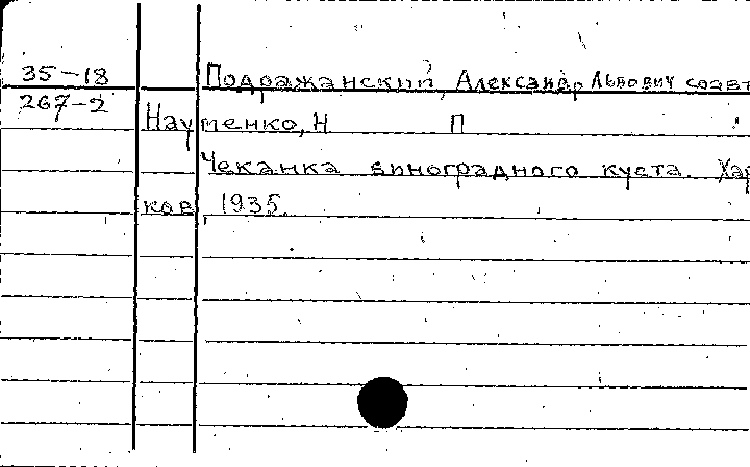 35-18 Подражанский, Александр Львович соавт
267-2 Науменко, Н П
Чеканка виноградного куста. Хар
ков, 1935.